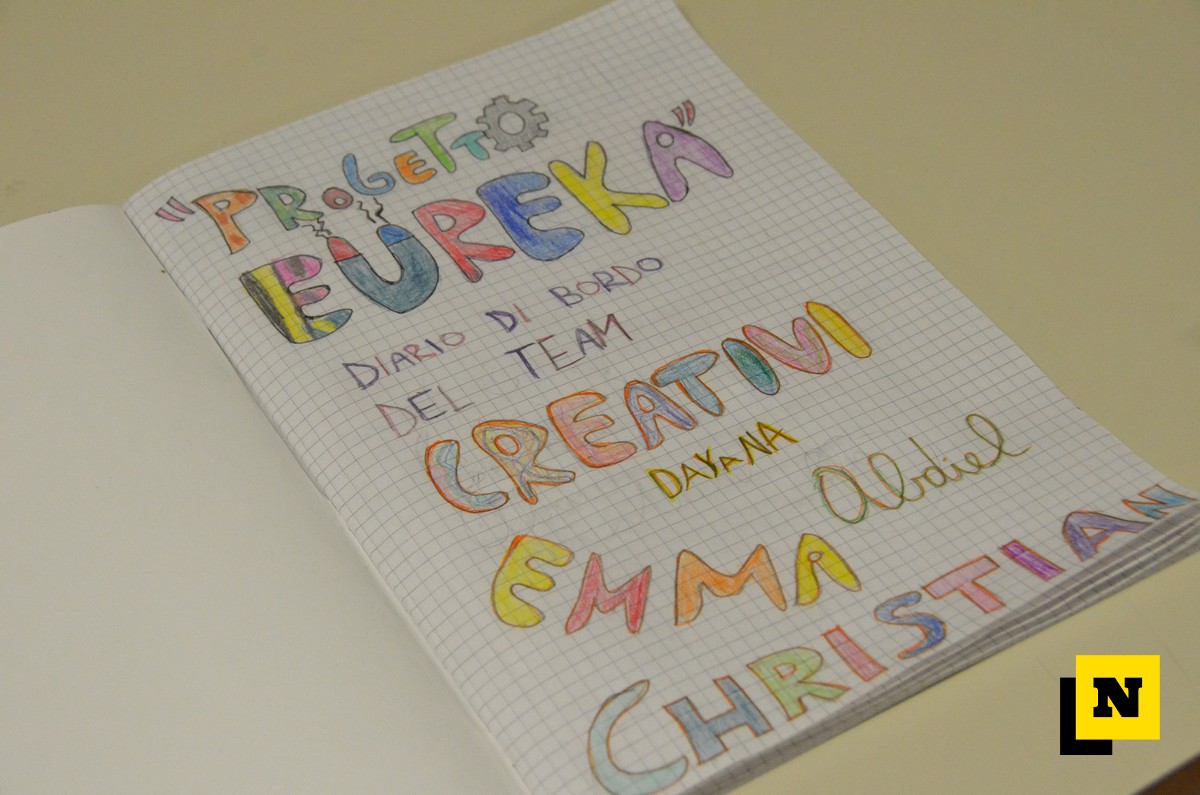 "PROGETTO
EUREKA"
DIARIO DI BORDO
DEL TEAM
CREATIVI
DAYANA
Abdiel
EMMA
CHRISTIAN
LN